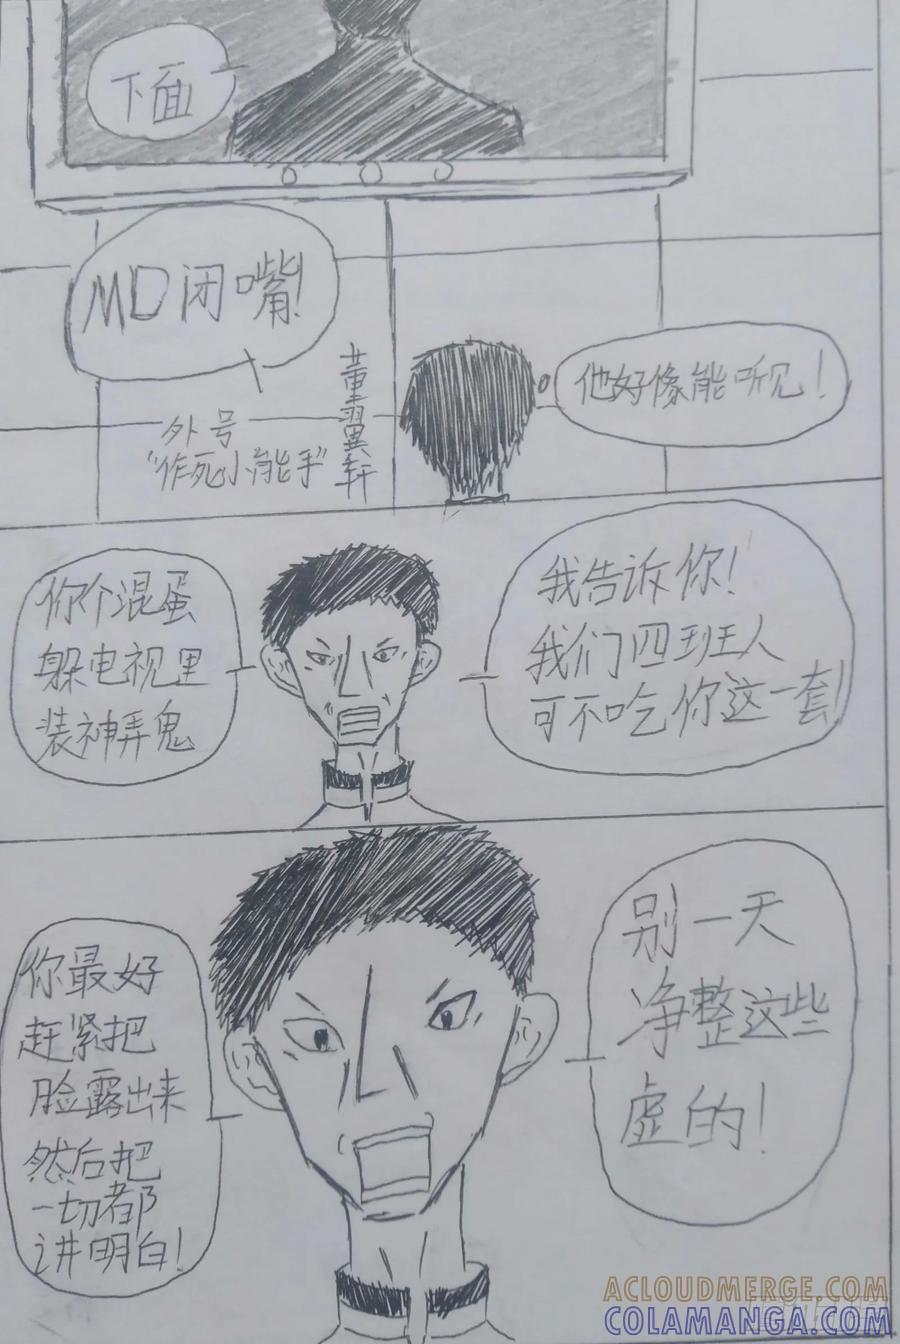 下面
MD闭嘴!
董翡翼轩
外号
"作死小能手"
他好像能听见!
你个混蛋
躲电视里
装神弄鬼
我告诉你!
我们四班人
可不吃你这一套!
你最好
赶紧把
脸露出来
然后把
一切都
讲明白!
别一天
净整这些
虚的!
ACLOUDMERGE.COM
COLAMANGA.COM